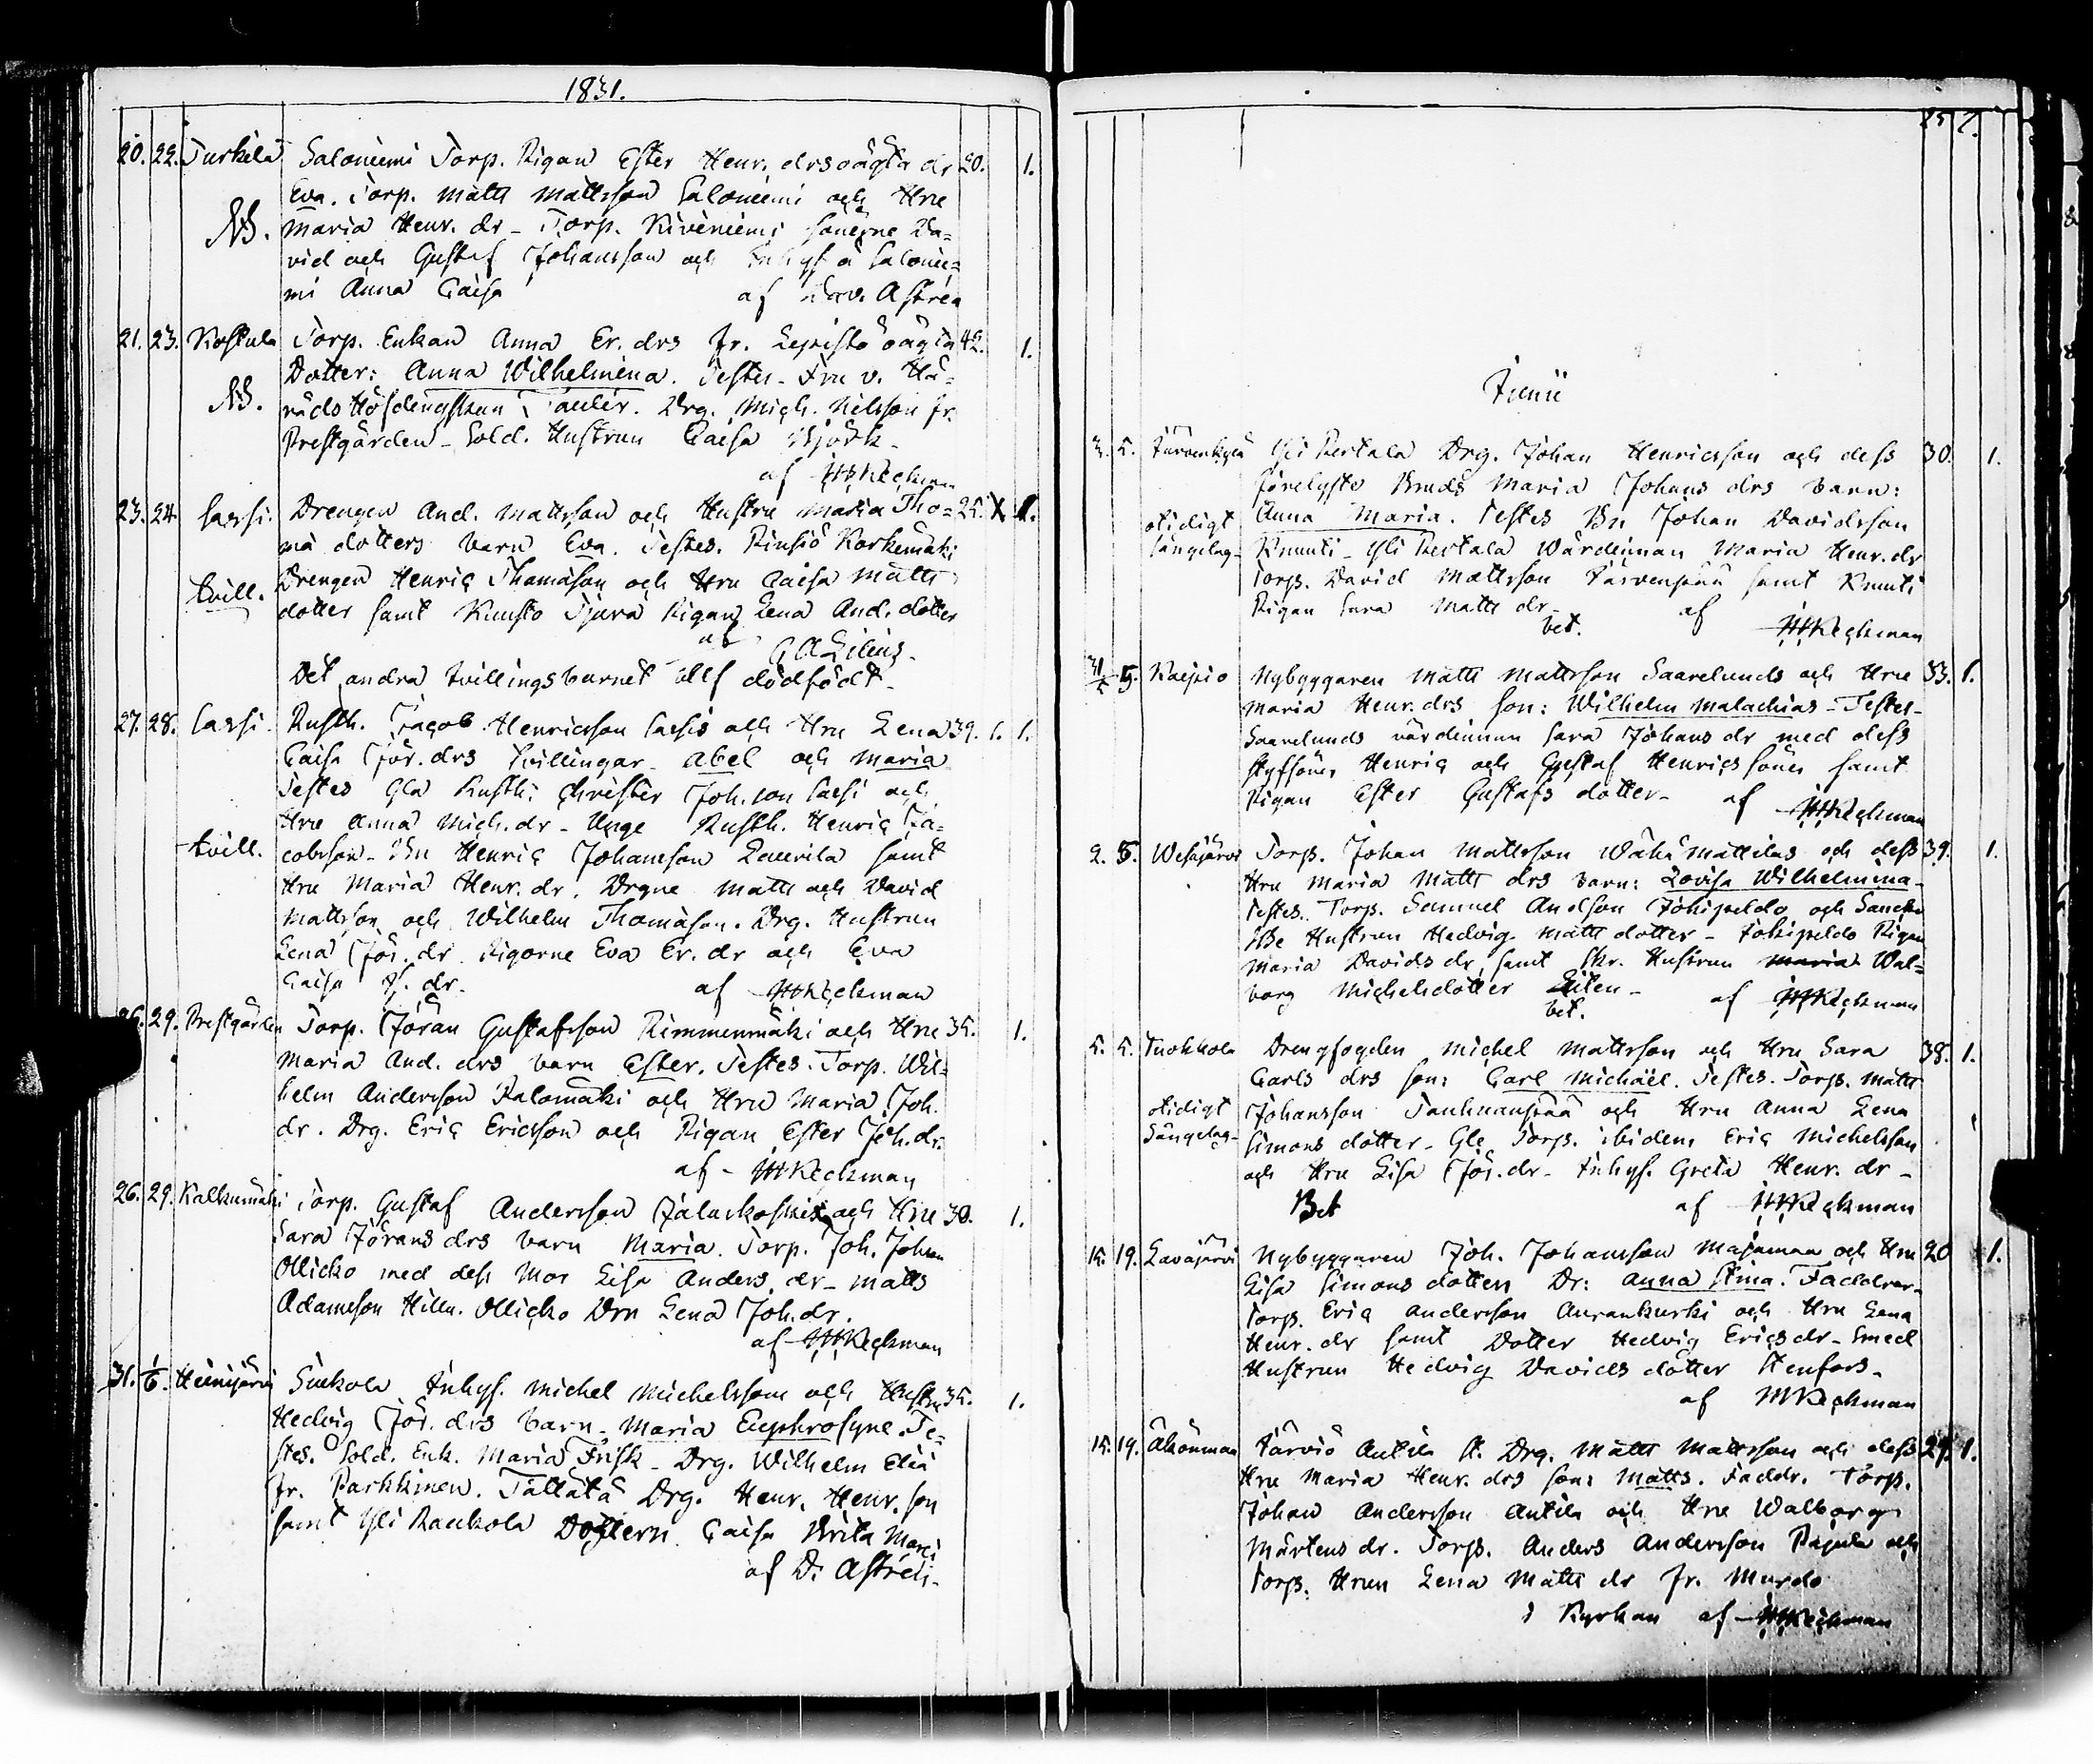 1831.
20. 22. Turkila Saloniemi Torp. Pigan Ester Henr. drs oägta dr 20. 1.
Eva. Torp. Matts Mattsson Saloniemi och Hru
NB. Maria Henr. dr - Torp. Kiviniemi sönerne Da=
vid och Gustaf Johansson och Inhys å Salonie=
mi Anna Caisa af Dav. Astrén
21. 23. Koskula Torp. Enkan Anna Er. drs fr. Lepistö oägta 42. 1.
Dotter: Anna Wilhelmina. Testes - Fru v. Hä=
NB. radshöfdingskan Drg. Mich. Nilsson fr.
Prestgården - Sold. Hustrun Caisa Björk -
af HHReckman
23. 24. Sassi. Drengen And. Mattsson och Hustru Maria Tho= 25. 1.
mä dotters barn Eva. Testes. Korkemäki
tvill. Drengen Henric Thomäson och Hru Caisa Matts
dotter samt Kunsto Pigan Lena And. dotter
af G A Lilius.
Det andra tvillingsbarnet blef dödfödt.
27. 28. Sassi. Rusth. Jacob Henricsson Sassis och Hru Lena 39. 1. 1.
Caisa Jör. drs tvillingar Abel och Maria
Testes Gla Rusth. Christer Joh.son Sassi och
Hru Anna Mich. dr - Unge Rusth. Henric Ja=
tvill. cobsson - Bn Henric Johansson Laurila samt
Hru Maria Henr. dr. Drgne Matts och David
Mattsson och Wilhelm Thomäson. Drg. Hustrun
Lena Jör. dr Pigorne Eva Er. dr och Eva
Caisa dr. af HHReckman
26. 29. Prestgården Torp. Jöran Gustafsson Rimmenmäki och Hru 35. 1.
Maria And. drs barn Ester. Testes. Torp. Wil=
helm Andersson Kalomäki och Hru Maria Joh.
dr. Drg. Eric Ericsson och Pigan Ester Joh. dr.
af - HHReckman
26. 29. Kalkunmäki Torp. Gustaf Andersson Jalaskoski och Hru 30. 1.
Sara Jörans drs barn Maria. Torp. Joh. Johan
Ollicko med dess Mor Lisa Anders dr - Matts
Adamsson Hillu. Ollicko Drn Lena Joh. dr.
af HHReckman
31. 1/6. Heinijärvi Sinkola Inhys. Michel Michelsson och Hustru 35. 1.
Hedvig Jör. drs barn - Maria Euphrosyne. Te=
stes. Sold. Enk. Maria Frisk - Drg. Wilhelm Eliä
fr. Parkkinen. Tallätä Drg. Henr. Henr. son
samt Yli Raukola Dottern Caisa Brita
af D. Astrén.
Junii
3. 5. Järvenkylä Yli Pertala Drg. Johan Henricsson och dess 30. 1.
förelyste Bruds Maria Johans drs barn:
otidigt Anna Maria. Testes Bn Johan Davidsson
sängelag - Knuuti - Yli Pertala Wärdinnan Maria Henr. dr
Torp. David Mattsson Järvenpää samt Knuuti
Pigan Sara Matts dr -
bet. af HHReckman
31/5 5. Raipio Nybyggaren Matts Mattsson Saarelunds och Hru 33. 1.
Maria Henr. drs son: Wilhelm Malachias - Testes -
Saarelunds värdinnan Sara Johans dr med dess
styfsöner Henric och Gustaf Henrics söner samt
Pigan Ester Gustafs dotter - af HHReckman
2. 5. Weskijärvi Torp. Johan Mattsson Wähä Mattilas och dess 39. 1.
Hru Maria Matts drs barn: Lovisa Wilhelmina -
Testes. Torp. Samuel Andsson Jokipeldo och
Hustrun Hedvig Matts dotter - Jokipeldo Pigan
Maria Davids dr, samt Skr. Hustrun Maria Wal=
borg Michelsdotter
bet. af HHReckman
5. 5. Tuokkola Drengfogden Michel Mattsson och Hru Sara 38. 1.
Carls drs son: Carl Michaël. Testes. Torp. Matts
otidigt Johansson Tanhuanpää och Hru Anna Lena
Sängelag - Simons dotter - Gle Torp. ibidem Eric Michelsson
och Hru Lisa Jör. dr - Inhys. Greta Henr. dr -
Bet af HHReckman
15. 19. Lavajärvi Nybyggaren Joh. Johansson Majamaa och Hru 20 1.
Lisa Simons dotters Dr: Anna Stina. Faddrar -
Torp. Eric Andersson Aurankurki och Hru Lena
Henr. dr samt Dotter Hedvig Erics dr - Smed
Hustrun Hedvig Davids dotter Stenfors -
af MReckman
15. 19. Äkönmaa Järviö Antila Drg. Matts Mattsson och dess 27. 1.
Hru Maria Henr. drs son: Matts. Faddr. Torp.
Johan Andersson Antila och Hru Walborg
Mårtens dr. Torp. Anders Andersson Pajula och
Torp. Hrun Lena Matts dr fr. Murdo
i Kyrkan af HHReckman